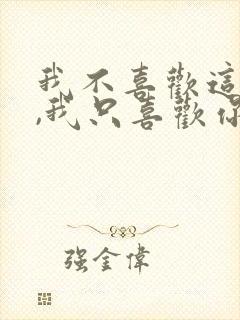 我不喜歡這
,我只喜歡你
强金偉